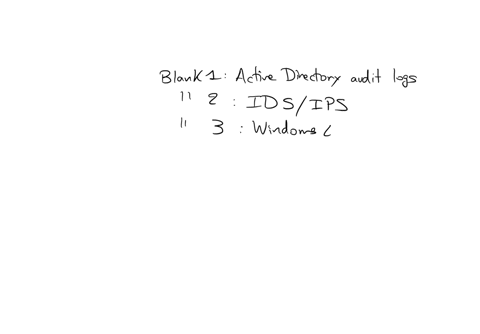 Blank 1: Active Directory audit logs
" 2: IDS/IPS
" 3: Windows